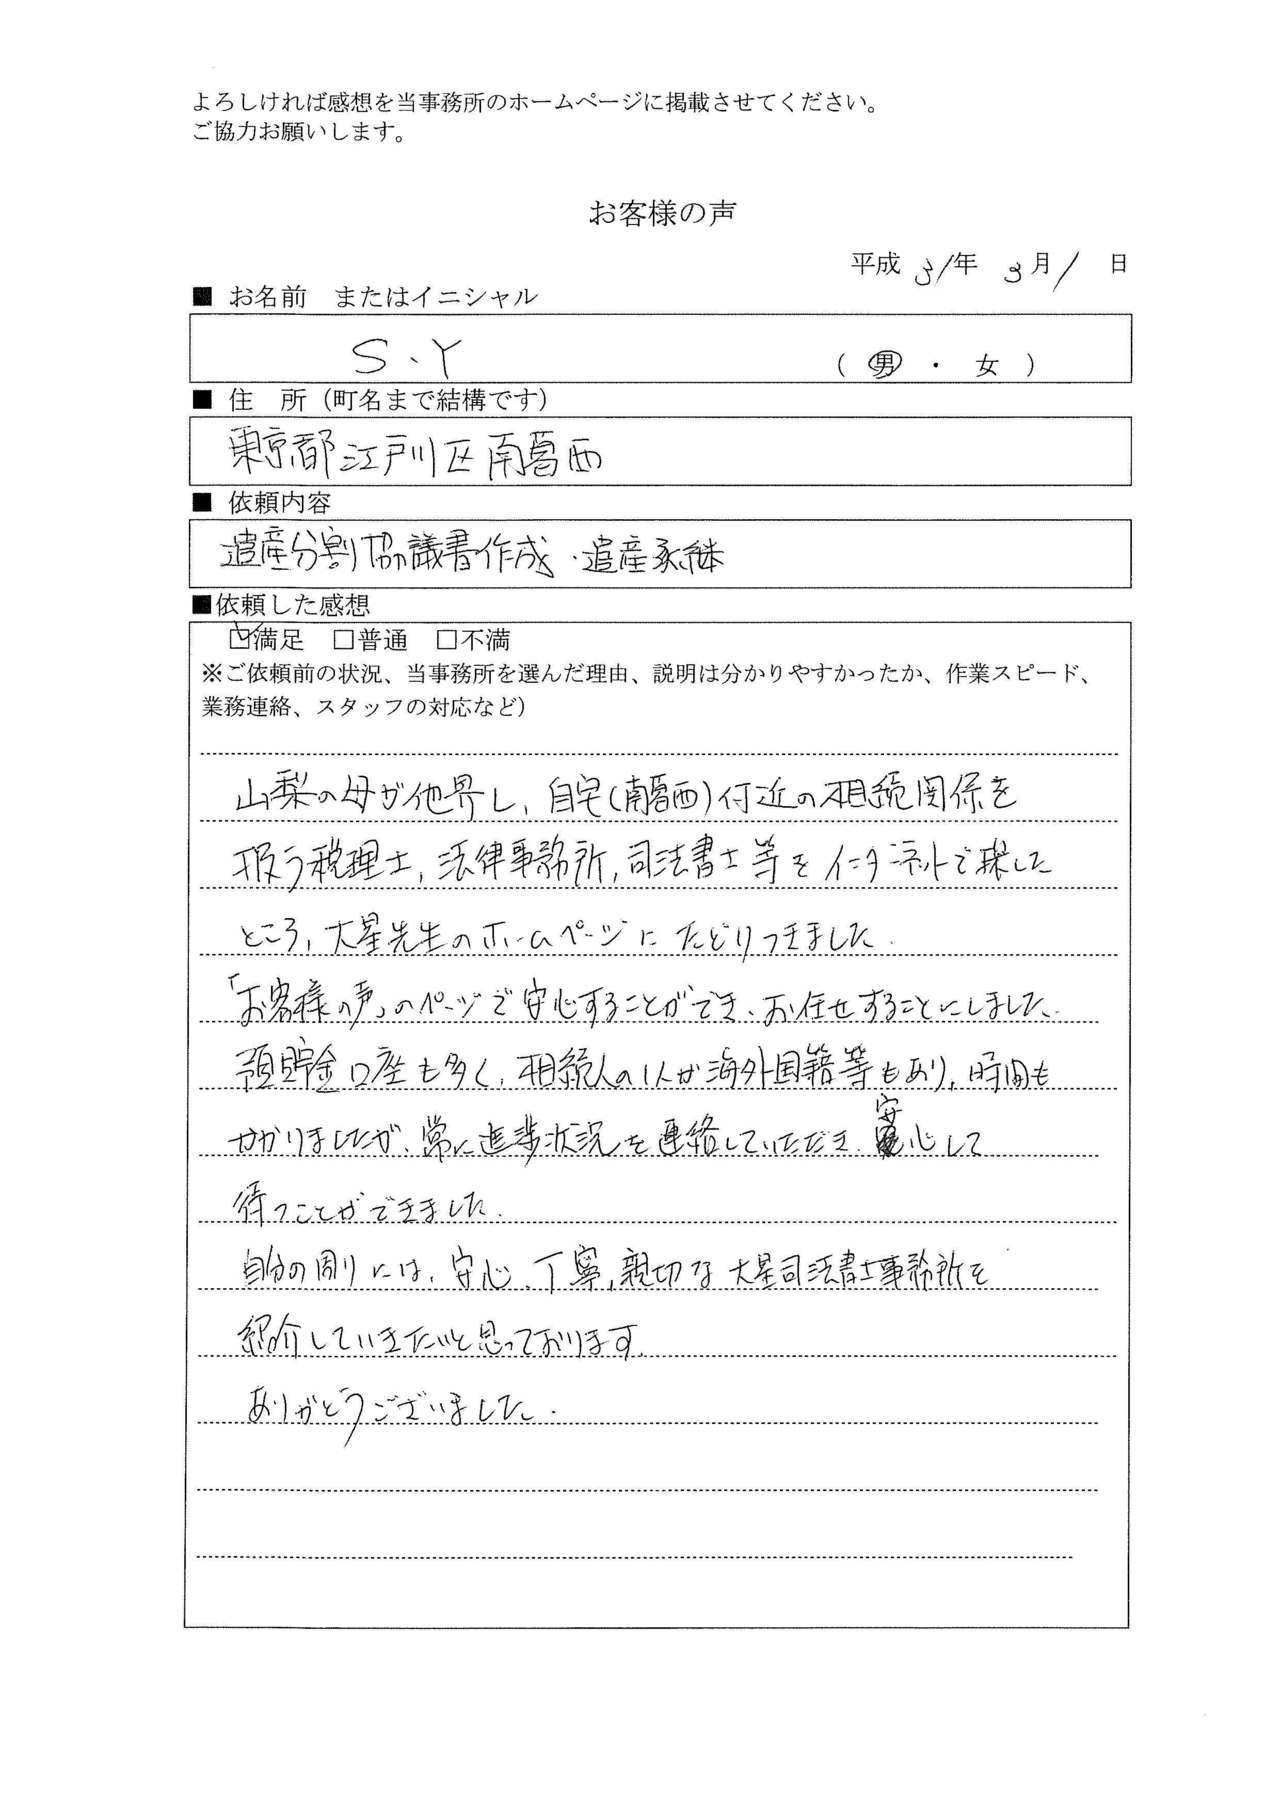 よろしければ感想を当事務所のホームページに掲載させてください。
ご協力お願いします。
お客様の声
平成 31年 3月 1 日
■ お名前 またはイニシャル
S.Y （ 男 ・ 女 ）
■ 住 所（町名まで結構です）
東京都江戸川区南葛西
■ 依頼内容
遺産分割協議書作成・遺産承継
■依頼した感想
☑満足 □普通 □不満
※ご依頼前の状況、当事務所を選んだ理由、説明は分かりやすかったか、作業スピード、
業務連絡、スタッフの対応など）
山梨の母が他界し、自宅(南葛西)付近の相続関係を
扱う税理士,法律事務所,司法書士等をインターネットで探した
ところ,大星先生のホームページにたどりつきました.
「お客様の声」のページで安心することができ、お任せすることにしました.
預貯金口座も多く、相続人の1人が海外国籍等もあり,時間も
かかりましたが、常に進捗状況を連絡していただき、安心して
待つことができました.
自分の周りには、安心、丁寧,親切な大星司法書士事務所を
紹介していきたいと思っております.
ありがとうございました.